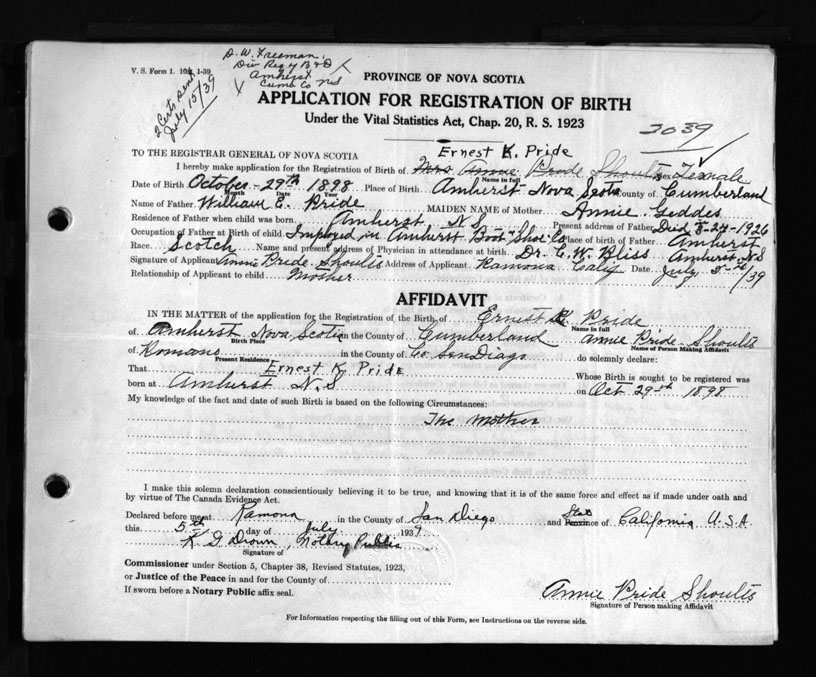 V. S. Form 1. 10M, 1-39
D. W. Freeman,
Div Reg of B & D
Amherst
Cumb Co N S
2 Certs sent
July 15/39
PROVINCE OF NOVA SCOTIA
APPLICATION FOR REGISTRATION OF BIRTH
Under the Vital Statistics Act, Chap. 20, R. S. 1923
2039
TO THE REGISTRAR GENERAL OF NOVA SCOTIA
Ernest K. Pride
I hereby make application for the Registration of Birth of Mrs Annie Pride Shoults Sex Female
Name in full
Date of Birth October - 29th 1898 Place of Birth Amherst Nova Scotia County of Cumberland
Month Date Year
Name of Father William E. Pride MAIDEN NAME of Mother Annie Geddes
Residence of Father when child was born Amherst N S Present address of Father Died 8-24-1926
Occupation of Father at Birth of child Imployed in Amherst Boot & Shoe Co Place of birth of Father Amherst
Race Scotch Name and present address of Physician in attendance at birth Dr. C. W. Bliss Amherst N S
Signature of Applicant Annie Pride Shoults Address of Applicant Ramona Calif Date July 5th/39
Relationship of Applicant to child Mother
AFFIDAVIT
IN THE MATTER of the application for the Registration of the Birth of Ernest K. Pride
Name in full
of Amherst Nova Scotia in the County of Cumberland Annie Pride Shoults
Birth Place Name of Person Making Affidavit
of Romano in the County of Co. San Diago do solemnly declare:
Present Residence
That Ernest K. Pride Whose Birth is sought to be registered was
born at Amherst N. S on Oct 29th 1898
My knowledge of the fact and date of such Birth is based on the following Circumstances:
The Mother
I make this solemn declaration conscientiously believing it to be true, and knowing that it is of the same force and effect as if made under oath and
by virtue of The Canada Evidence Act.
Declared before me at Ramona in the County of San Diego and State Province of California U.S.A
this 5th day of July 1939
K D Drown, Notary Public
Signature of
Commissioner under Section 5, Chapter 38, Revised Statutes, 1923,
or Justice of the Peace in and for the County of
If sworn before a Notary Public affix seal.
Annie Pride Shoults
Signature of Person making Affidavit
For Information respecting the filling out of this Form, see Instructions on the reverse side.